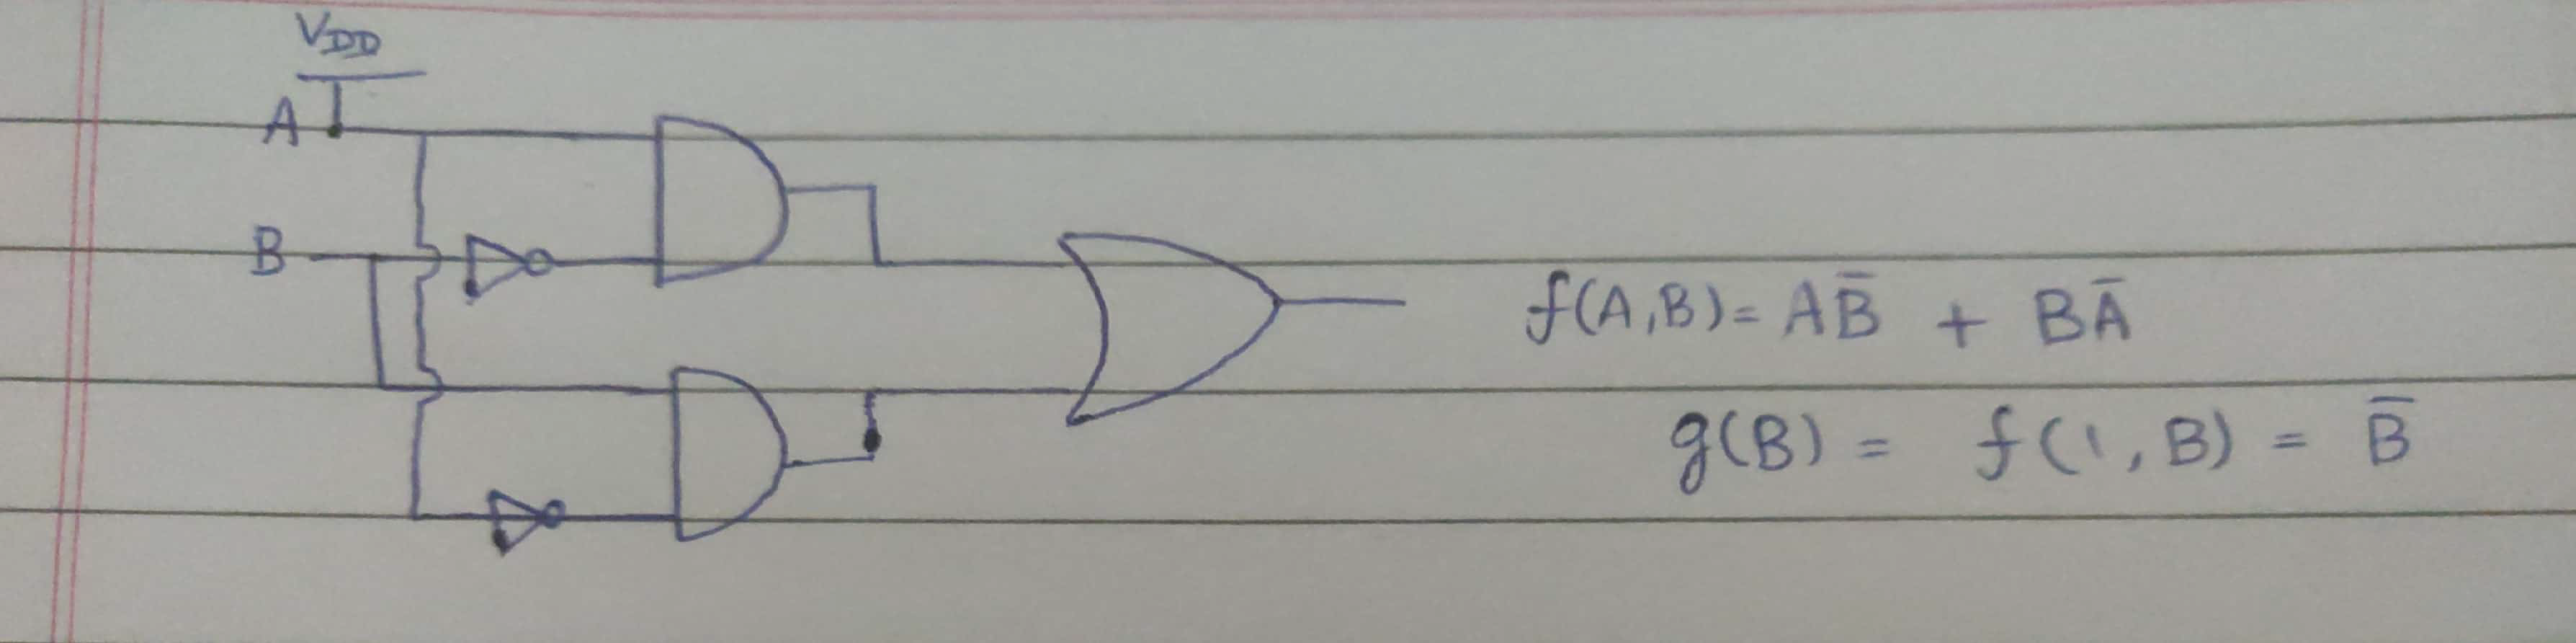 V_DD
A
B
f(A,B) = AB̅ + BA̅
g(B) = f(1, B) = B̅